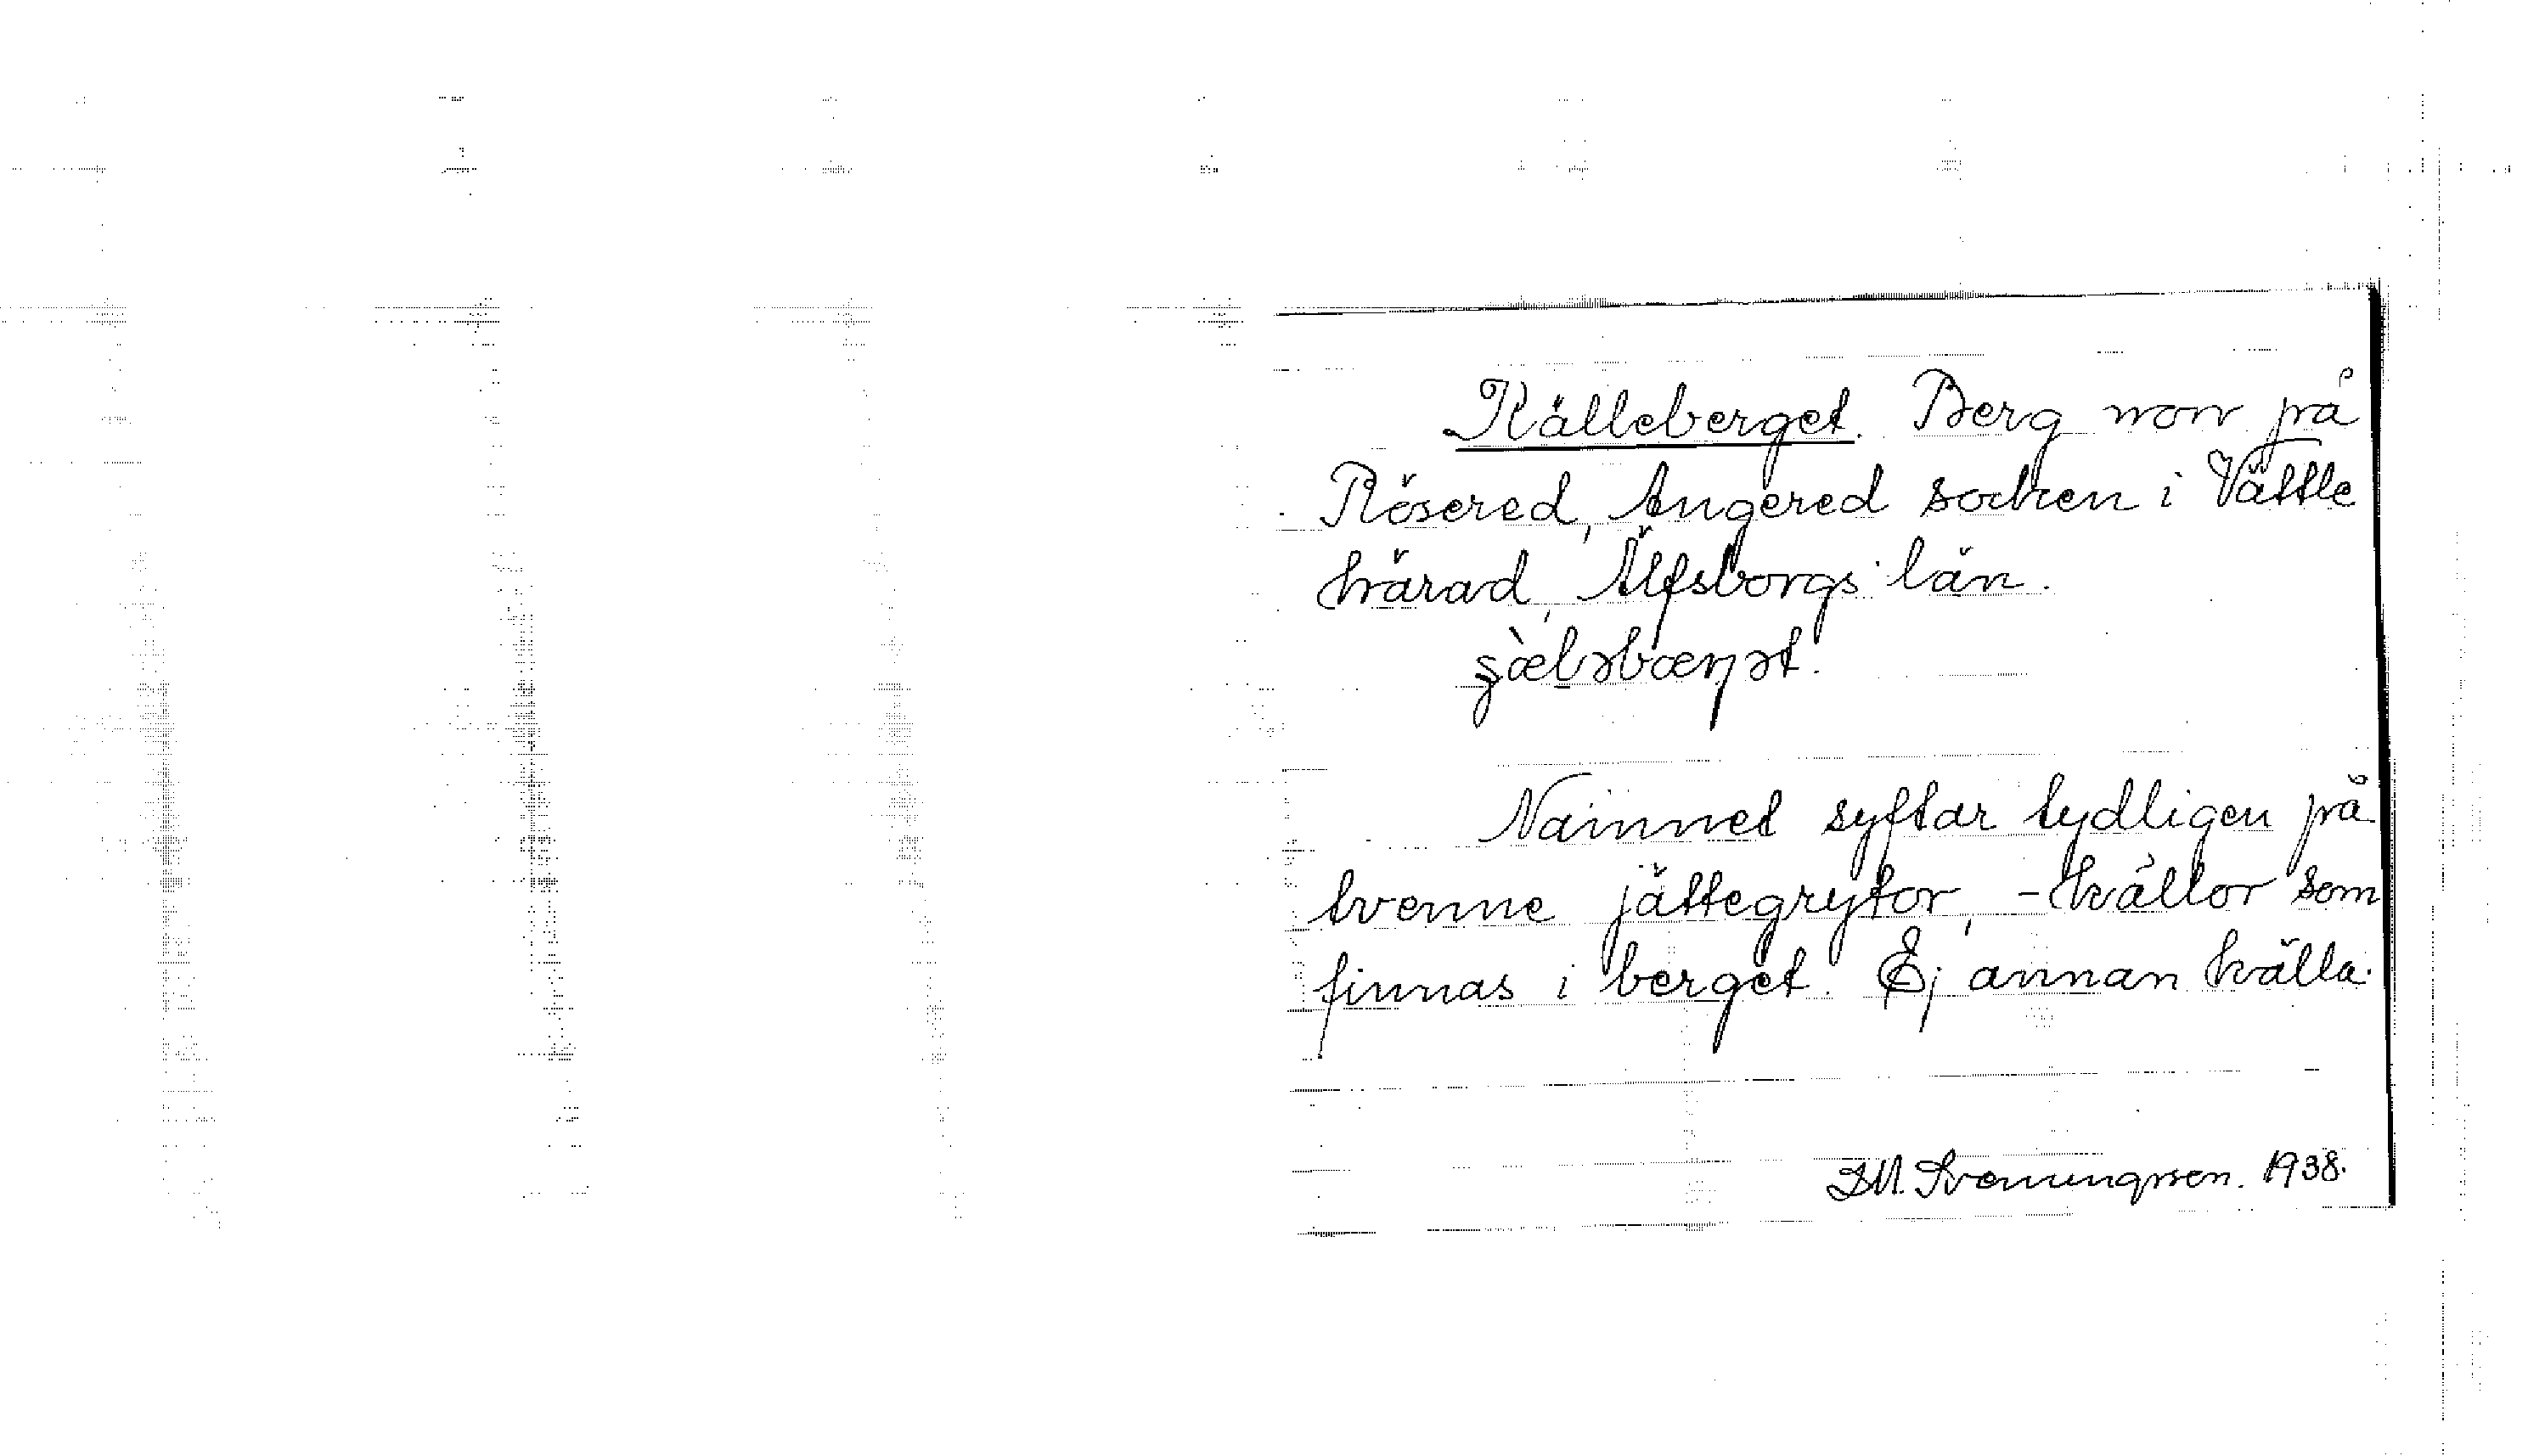 Källeberget. Berg norr på
Rösered, Angered socken i Vättle
härad, Älfsborgs län.
Namnet syftar tydligen på
tvenne jättegrytor, - källor som
finnas i berget. Ej annan källa.
J.M. Svenungsson. 1938.